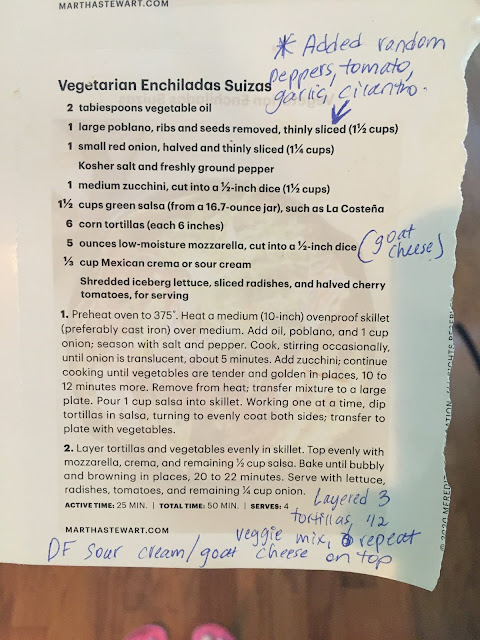 MARTHASTEWART.COM
* Added random
peppers, tomato,
garlic, cilantro.
Vegetarian Enchiladas Suizas
2 tablespoons vegetable oil
1 large poblano, ribs and seeds removed, thinly sliced (1½ cups)
1 small red onion, halved and thinly sliced (1¼ cups)
Kosher salt and freshly ground pepper
1 medium zucchini, cut into a ½-inch dice (1½ cups)
1½ cups green salsa (from a 16.7-ounce jar), such as La Costeña
6 corn tortillas (each 6 inches)
5 ounces low-moisture mozzarella, cut into a ½-inch dice
(goat
cheese)
⅓ cup Mexican crema or sour cream
Shredded iceberg lettuce, sliced radishes, and halved cherry
tomatoes, for serving
1. Preheat oven to 375°. Heat a medium (10-inch) ovenproof skillet
(preferably cast iron) over medium. Add oil, poblano, and 1 cup
onion; season with salt and pepper. Cook, stirring occasionally,
until onion is translucent, about 5 minutes. Add zucchini; continue
cooking until vegetables are tender and golden in places, 10 to
12 minutes more. Remove from heat; transfer mixture to a large
plate. Pour 1 cup salsa into skillet. Working one at a time, dip
tortillas in salsa, turning to evenly coat both sides; transfer to
plate with vegetables.
2. Layer tortillas and vegetables evenly in skillet. Top evenly with
mozzarella, crema, and remaining ½ cup salsa. Bake until bubbly
and browning in places, 20 to 22 minutes. Serve with lettuce,
radishes, tomatoes, and remaining ¼ cup onion.
ACTIVE TIME: 25 MIN. | TOTAL TIME: 50 MIN. | SERVES: 4
Layered 3
tortillas, 1/2
veggie mix, repeat
MARTHASTEWART.COM
DF sour cream/goat cheese on top
© 2020 MEREDI